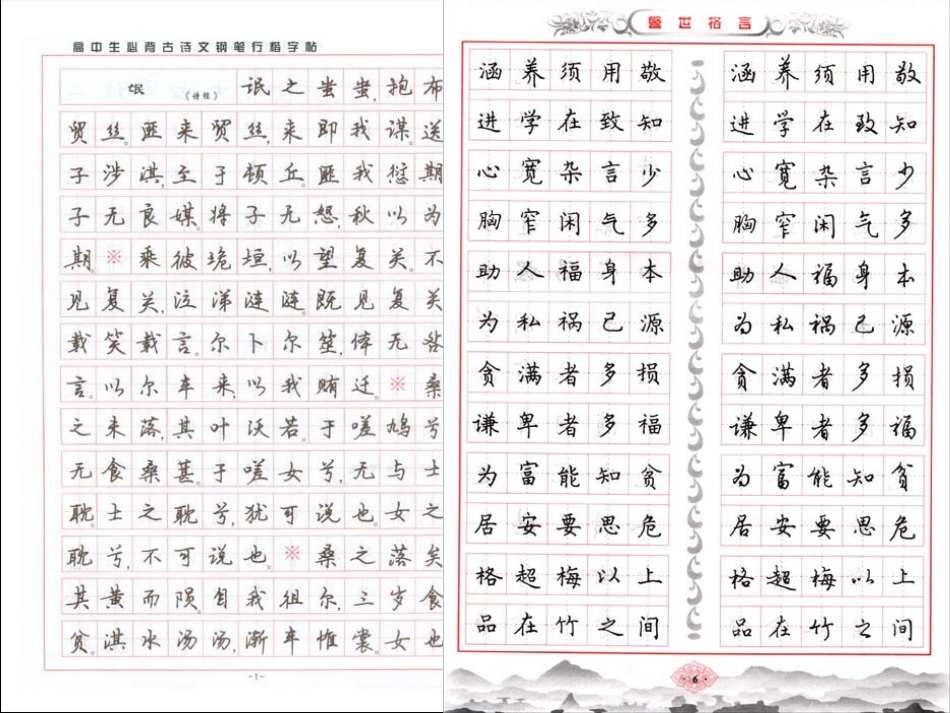 高中生必背古诗文钢笔行楷字帖
氓 《诗经》 氓之蚩蚩,抱布
贸丝。匪来贸丝,来即我谋。送
子涉淇,至于顿丘。匪我愆期,
子无良媒。将子无怒,秋以为
期。※乘彼垝垣,以望复关。不
见复关,泣涕涟涟。既见复关,
载笑载言。尔卜尔筮,体无咎
言。以尔车来,以我贿迁。※桑
之未落,其叶沃若。于嗟鸠兮,
无食桑葚。于嗟女兮,无与士
耽。士之耽兮,犹可说也。女之
耽兮,不可说也。※桑之落矣,
其黄而陨。自我徂尔,三岁食
贫。淇水汤汤,渐车帷裳。女也
-1-
警世裕言
涵养须用敬
进学在致知
心宽杂言少
胸窄闲气多
助人福身本
为私祸己源
贪满者多损
谦卑者多福
为富能知贫
居安要思危
格超梅以上
品在竹之间
涵养须用敬
进学在致知
心宽杂言少
胸窄闲气多
助人福身本
为私祸己源
贪满者多损
谦卑者多福
为富能知贫
居安要思危
格超梅以上
品在竹之间
6